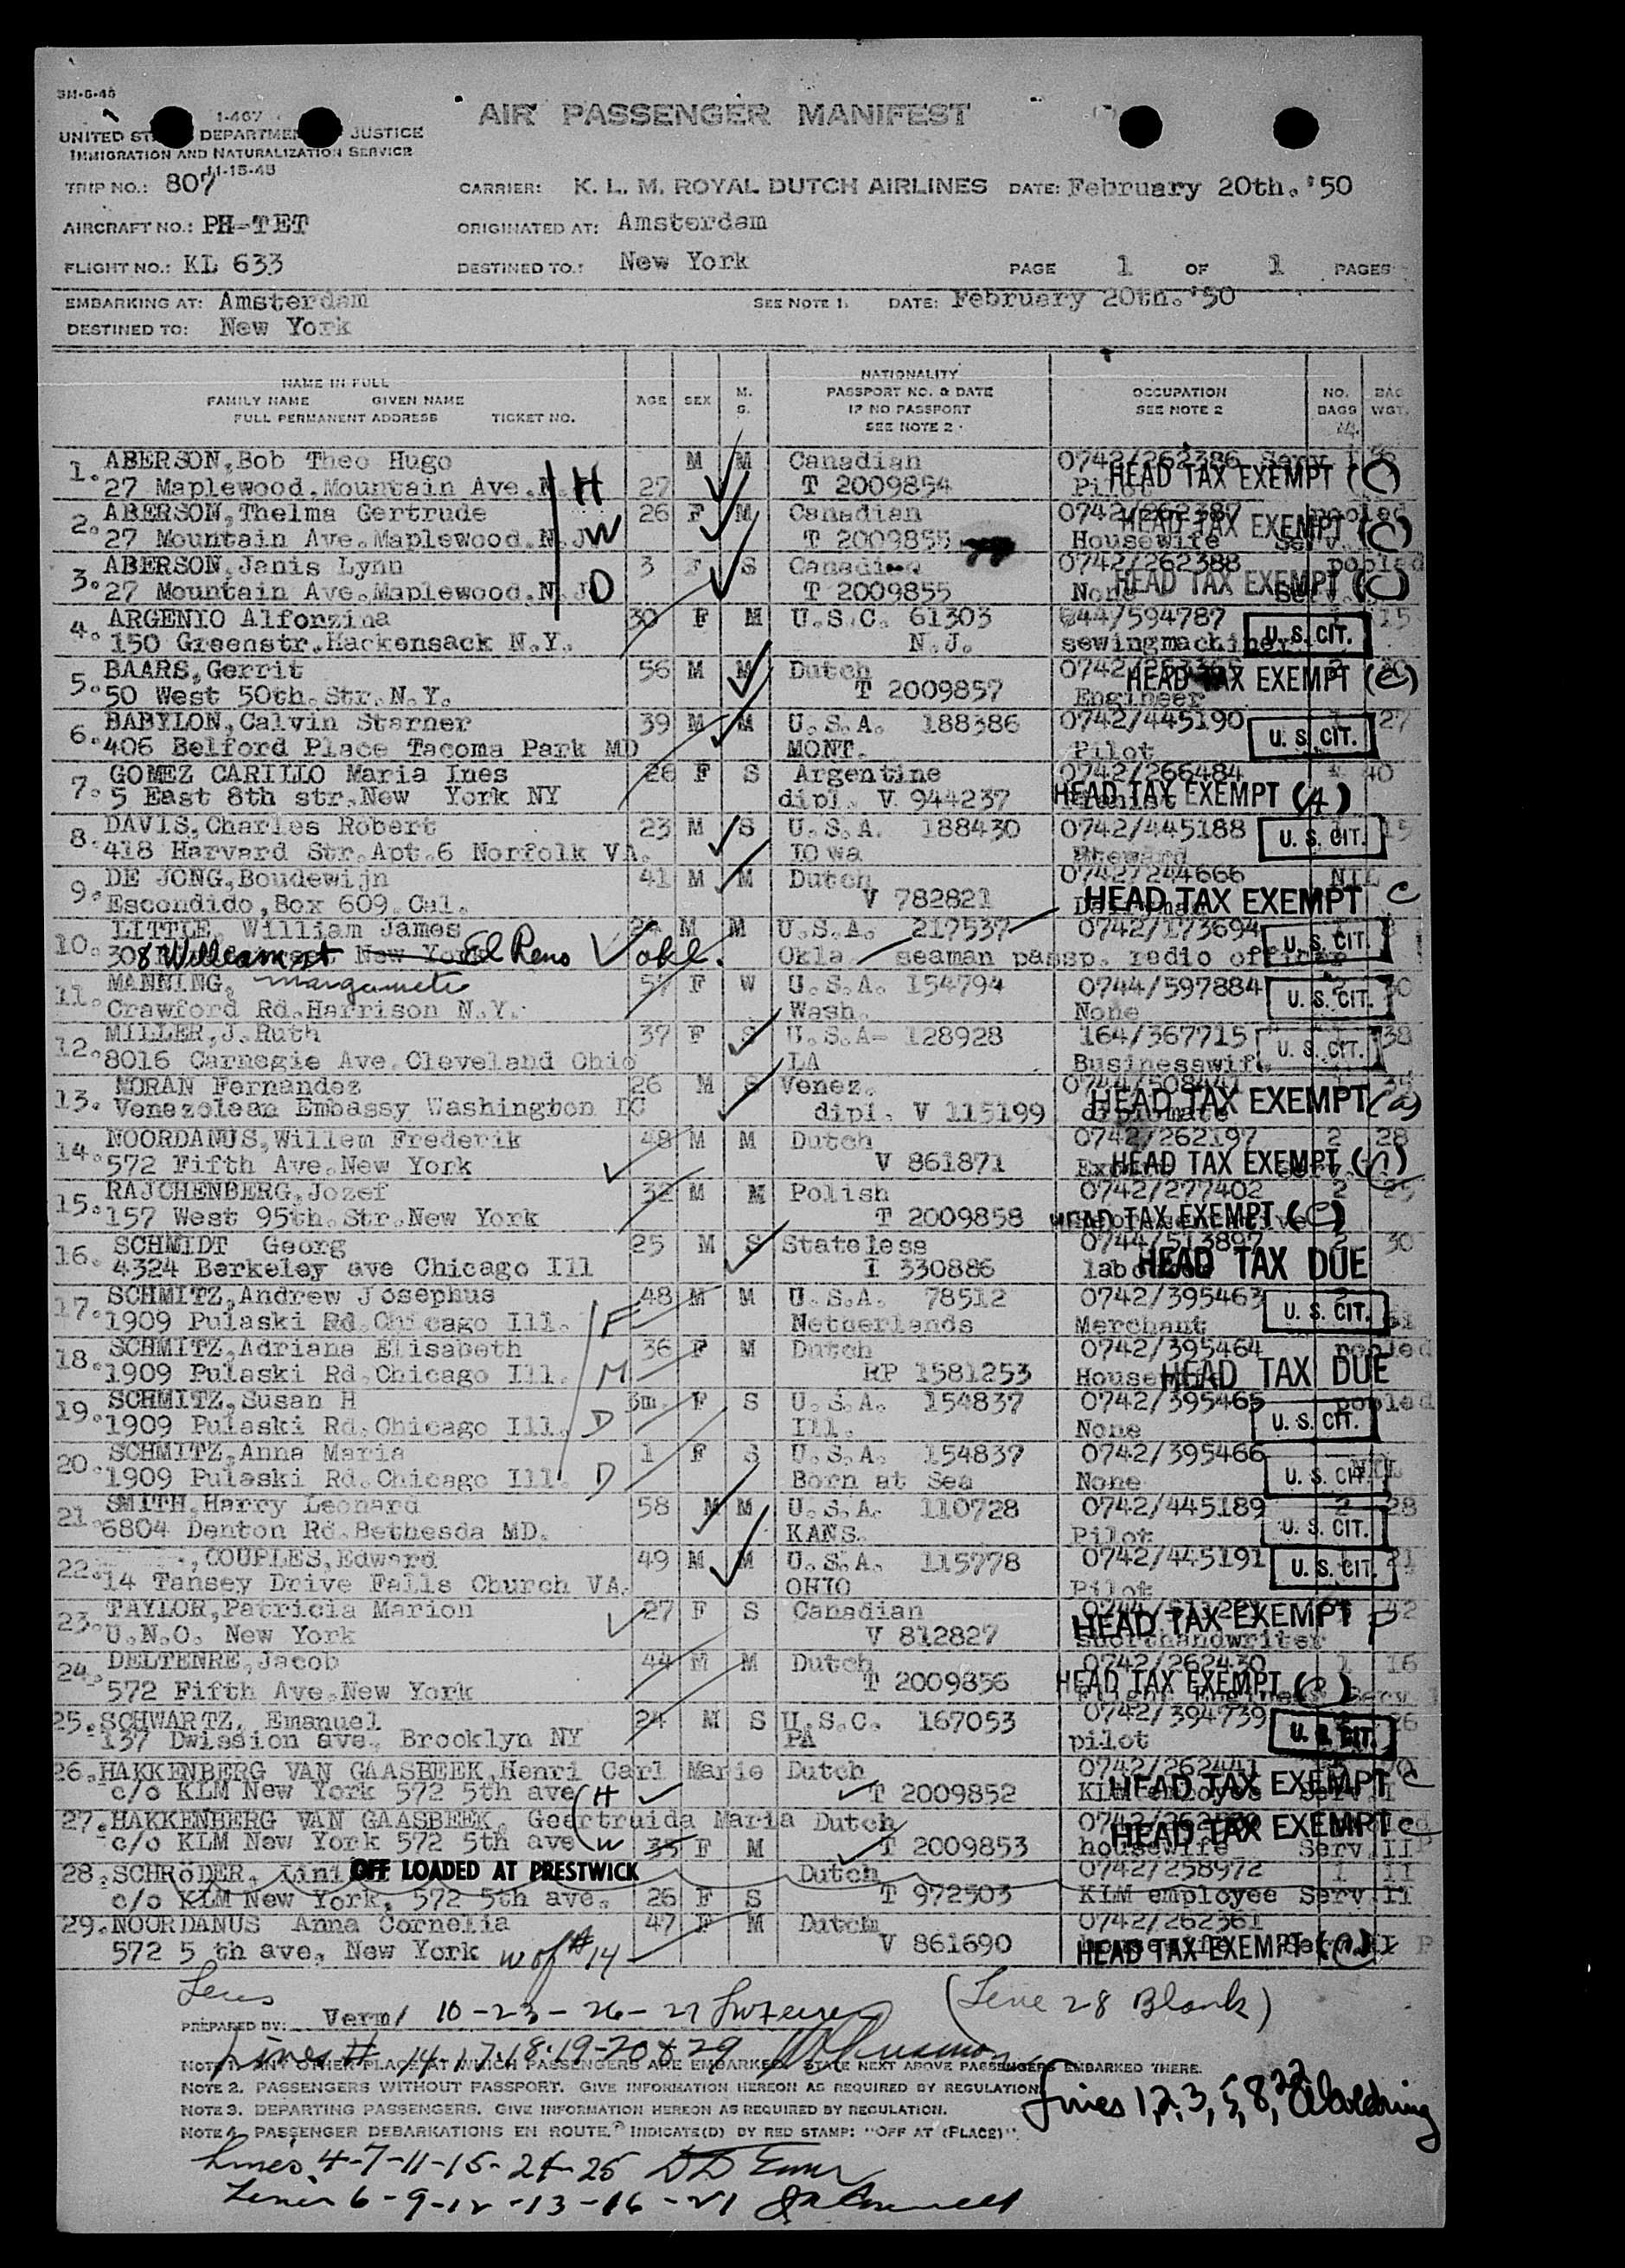 3M-6-48
I-467
UNITED ST DEPARTME JUSTICE
IMMIGRATION AND NATURALIZATION SERVICE
11-15-48
AIR PASSENGER MANIFEST
TRIP NO.: 807 CARRIER: K. L. M. ROYAL DUTCH AIRLINES DATE: February 20th.'50
AIRCRAFT NO.: PH-TET ORIGINATED AT: Amsterdam
FLIGHT NO.: KL 633 DESTINED TO.: New York PAGE 1 OF 1 PAGES
EMBARKING AT: Amsterdam SEE NOTE 1. DATE: February 20th.'50
DESTINED TO: New York
NAME IN FULL
FAMILY NAME GIVEN NAME
FULL PERMANENT ADDRESS TICKET NO.
AGE SEX M. S.
NATIONALITY
PASSPORT NO. & DATE
IF NO PASSPORT
SEE NOTE 2
OCCUPATION
SEE NOTE 2
NO. BAGS
BAG WGT.
1. ABERSON, Bob Theo Hugo M M Canadian 0742/262386 Serv
27 Maplewood.Mountain Ave. H 27 T 2009854 HEAD TAX EXEMPT (C)
2. ABERSON, Thelma Gertrude 26 F M Canadian 0742/262387 pooled
27 Mountain Ave.Maplewood.N.J W T 2009855 Housewife HEAD TAX EXEMPT (C)
3. ABERSON, Janis Lynn 3 F S 0742/262388 pooled
27 Mountain Ave.Maplewood.N.J D T 2009855 None HEAD TAX EXEMPT (C)
4. ARGENIO Alfonzina 30 F M U.S.C. 61303 644/594787 15
150 Greenstr.Hackensack N.Y. N.J. sewingmachiner U.S.CIT.
5. BAARS, Gerrit 56 M M Dutch
50 West 50th.Str.N.Y. T 2009857 Engineer HEAD TAX EXEMPT (C)
6. BABYLON, Calvin Starner 39 M M U.S.A. 188386 0742/445190 1 27
406 Belford Place Tacoma Park MD MONT. Pilot U.S.CIT.
7. GOMEZ CARILLO Maria Ines 26 F S Argentine 0742/266484 40
5 East 8th str.New York NY dipl. V 944237 HEAD TAX EXEMPT (A)
8. DAVIS, Charles Robert 23 M S U.S.A. 188430 0742/445188 15
418 Harvard Str.Apt.6 Norfolk VA. IOwa Steward U.S.CIT.
9. DE JONG, Boudewijn 41 M M Dutch 0742/244666 NIL
Escondido, Box 609.Cal. V 782821 HEAD TAX EXEMPT C
10. LITTLE, William James M M U.S.A. 217537 0742/173694
308 William st New York El Reno okl. Okla. seaman passp. radio officer U.S.CIT.
11. MANNING, Marguerite 57 F W U.S.A. 154794 0744/597884
Crawford Rd.Harrison N.Y. Wash. None U.S.CIT.
12. MILLER, J.Ruth 37 F S U.S.A- 128928 164/367715 38
8016 Carnegie Ave.Cleveland Ohio LA Businesswife U.S.CIT.
13. MORAN Fernandez 26 M S Venez.
Venezolean Embassy Washington DC dipl. V 115199 diplomate HEAD TAX EXEMPT (a)
14. NOORDANUS, Willem Frederik 48 M M Dutch 0742/262197 2 28
572 Fifth Ave.New York V 861871 HEAD TAX EXEMPT (C)
15. RAJCHENBERG, Jozef 32 M M Polish 0742/277402 2 25
157 West 95th.Str.New York T 2009858 HEAD TAX EXEMPT (C)
16. SCHMIDT Georg 25 M S Stateless 0744/513897 2 30
4324 Berkeley ave Chicago Ill I 330886 HEAD TAX DUE
17. SCHMITZ, Andrew Josephus 48 M M U.S.A. 78512 0742/395463 2
1909 Pulaski Rd.Chicago Ill. F Netherlands Merchant U.S.CIT.
18. SCHMITZ, Adriana Elisabeth 36 F M Dutch 0742/395464 pooled
1909 Pulaski Rd.Chicago Ill. M RP 1581253 HEAD TAX DUE
19. SCHMITZ, Susan H 3m. F S U.S.A. 154837 0742/395465 pooled
1909 Pulaski Rd.Chicago Ill. D Ill. None U.S.CIT.
20. SCHMITZ, Anna Maria 1 F S U.S.A. 154837 0742/395466 NIL
1909 Pulaski Rd.Chicago Ill. D Born at Sea None U.S.CIT.
21. SMITH, Harry Leonard 58 M M U.S.A. 110728 0742/445189 2 28
6804 Denton Rd.Bethesda MD. KANS. Pilot U.S.CIT.
22. , COUPLES, Edward 49 M M U.S.A. 115778 0742/445191 21
14 Tansey Drive Falls Church VA. OHIO Pilot U.S.CIT.
23. TAYLOR, Patricia Marion 27 F S Canadian 42
U.N.O. New York V 812827 shorthandwriter HEAD TAX EXEMPT P
24. DELTENRE, Jacob 44 M M Dutch 0742/262430 1 16
572 Fifth Ave.New York T 2009856 HEAD TAX EXEMPT (C)
25. SCHWARTZ, Emanuel 24 M S U.S.C. 167053 0742/394739 26
137 Dwission ave. Brooklyn NY PA pilot U.S.CIT.
26. HAKKENBERG VAN GAASBEEK, Henri Carl Marie Dutch 0742/262441
c/o KLM New York 572 5th ave H T 2009852 KLM employee HEAD TAX EXEMPT C
27. HAKKENBERG VAN GAASBEEK, Geertruida Maria Dutch
c/o KLM New York 572 5th ave W 35 F M T 2009853 housewife Serv.II HEAD TAX EXEMPT C
28. SCHRöDER, Lini OFF LOADED AT PRESTWICK Dutch 0742/258972 1 11
c/o KLM New York, 572 5th ave. 26 F S T 972503 KLM employee Serv.II
29. NOORDANUS Anna Cornelia 47 F M Dutch 0742/262361
572 5 th ave. New York w of #14 V 861690 HEAD TAX EXEMPT (C)
PREPARED BY: Verm/ 10-23-26-27 (Line 28 Blank)
Lines # 14.17.18.19-20 & 29
NOTE 1. OTHER PLACE AT WHICH PASSENGERS ARE EMBARKED. STATE NEXT ABOVE PASSENGERS EMBARKED THERE.
NOTE 2. PASSENGERS WITHOUT PASSPORT. GIVE INFORMATION HEREON AS REQUIRED BY REGULATION.
NOTE 3. DEPARTING PASSENGERS. GIVE INFORMATION HEREON AS REQUIRED BY REGULATION.
NOTE 4. PASSENGER DEBARKATIONS EN ROUTE. INDICATE(D) BY RED STAMP: "OFF AT (PLACE)".
Lines 1,2,3,5,8,22
Lines 4-7-11-15-24-25
Lines 6-9-12-13-16-21